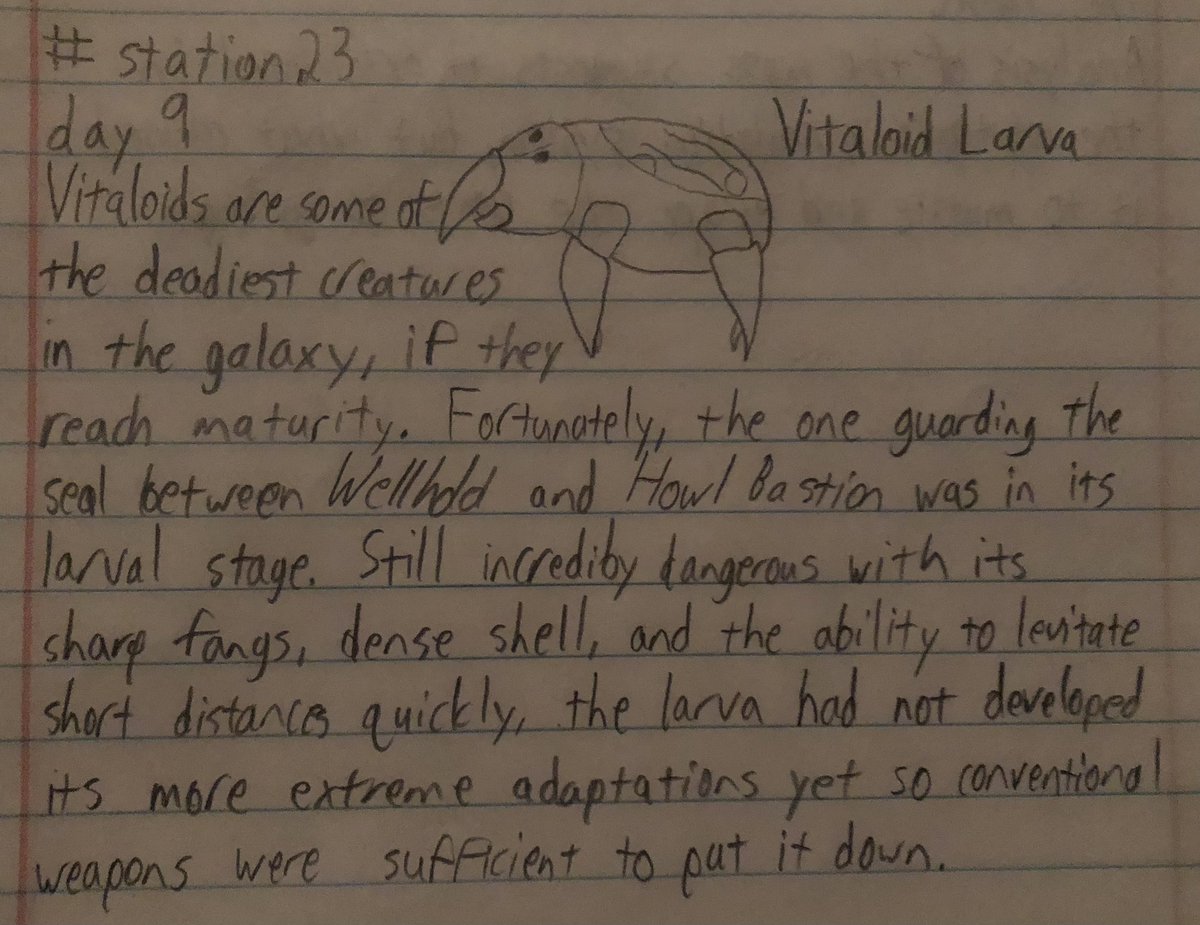 # station23
day 9
Vitaloid Larva
Vitaloids are some of
the deadiest creatures
in the galaxy, if they
reach maturity. Fortunately, the one guarding the
seal between Wellhold and Howl Bastion was in its
larval stage. Still incrediby dangerous with its
sharp fangs, dense shell, and the ability to levitate
short distances quickly, the larva had not developed
its more extreme adaptations yet so conventional
weapons were sufficient to put it down.